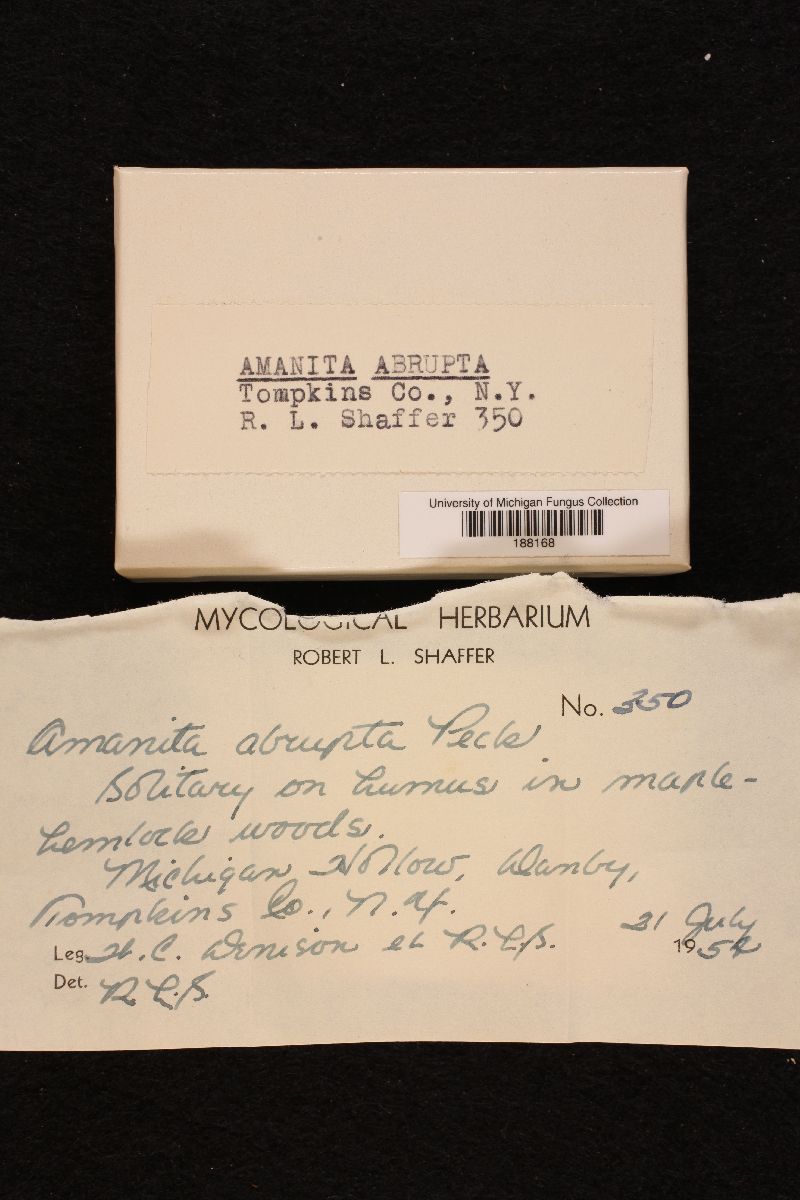 AMANITA ABRUPTA
Tompkins Co., N.Y.
R. L. Shaffer 350
University of Michigan Fungus Collection
188168
MYCOLOGICAL HERBARIUM
ROBERT L. SHAFFER
No. 350
Amanita abrupta Peck
Solitary on humus in maple-
hemlock woods.
Michigan Hollow, Danby,
Tompkins Co., N.Y.
31 July
Leg. W. C. Denison et R.L.S. 1954
Det. R.L.S.